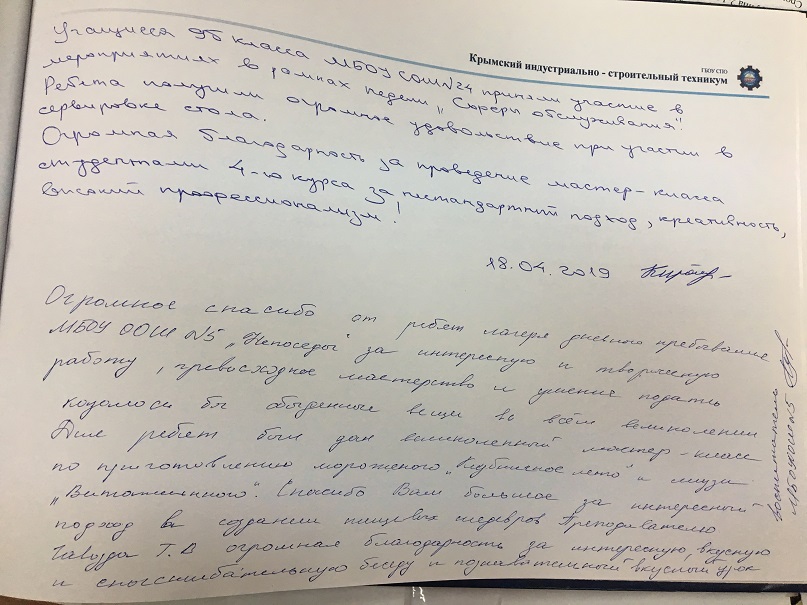 ГБОУ СПО
Крымский индустриально - строительный техникум
Учащиеся 9Б класса МБОУ СОШ N24 приняли участие в
мероприятиях в рамках недели „Сферы обслуживания".
Ребята получили огромное удовольствие при участии в
сервировке стола.
Огромная благодарность за проведение мастер-класса
студентами 4-го курса за нестандартный подход, креативность,
высокий профессионализм!
18.04.2019
Огромное спасибо от ребят лагеря дневного пребывание
МБОУ ООШ N5 „Непоседы" за интересную и творческую
работу, превосходное мастерство и умение подать
казалось бы обыденные вещи во всём великолепии
Для ребят был дан великолепный мастер-класс
по приготовлению мороженого „Клубничное лето" и смузи
„Витаминного". Спасибо Вам большое за интересный
подход в создании пищевых шедевров Преподавателю
Т.В огромная благодарность за интересную, вкусную
и беседу и познавательный вкусный урок
воспитатель
МБОУ ООШ N5